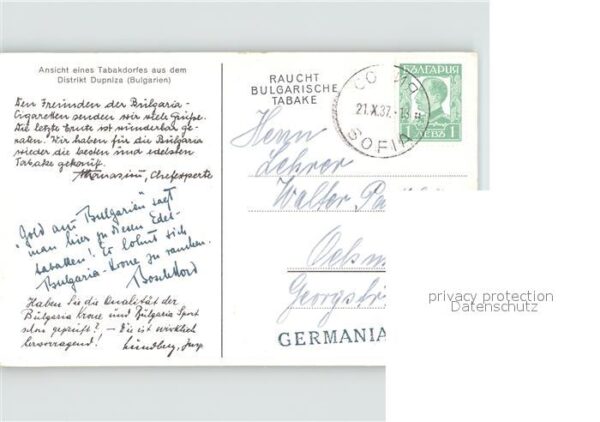 Ansicht eines Tabakdorfes aus dem
Distrikt Dupniza (Bulgarien)
Den Freunden der Bulgaria-
Cigaretten senden wir viele Grüße.
Die letzte Ernte ist wunderbar ge-
raten. Wir haben für die Bulgaria
wieder die besten und edelsten
Tabake gekauft.
Athanasiu, Chefexperte
"Gold aus Bulgarien" sagt
man hier zu diesen Edel-
tabaken! Es lohnt sich
Bulgaria-Krone zu rauchen.
Haben Sie die Qualität der
Bulgaria Krone und Bulgaria Sport
schon geprüft? – Die ist wirklich
hervorragend!
RAUCHT
BULGARISCHE
TABAKE
СОФИЯ
21.X.37.-13
SOFIA
БЪЛГАРИЯ
ЛЕВЪ 1
Herrn
Lehrer
Walter
GERMANIA
privacy protection
Datenschutz